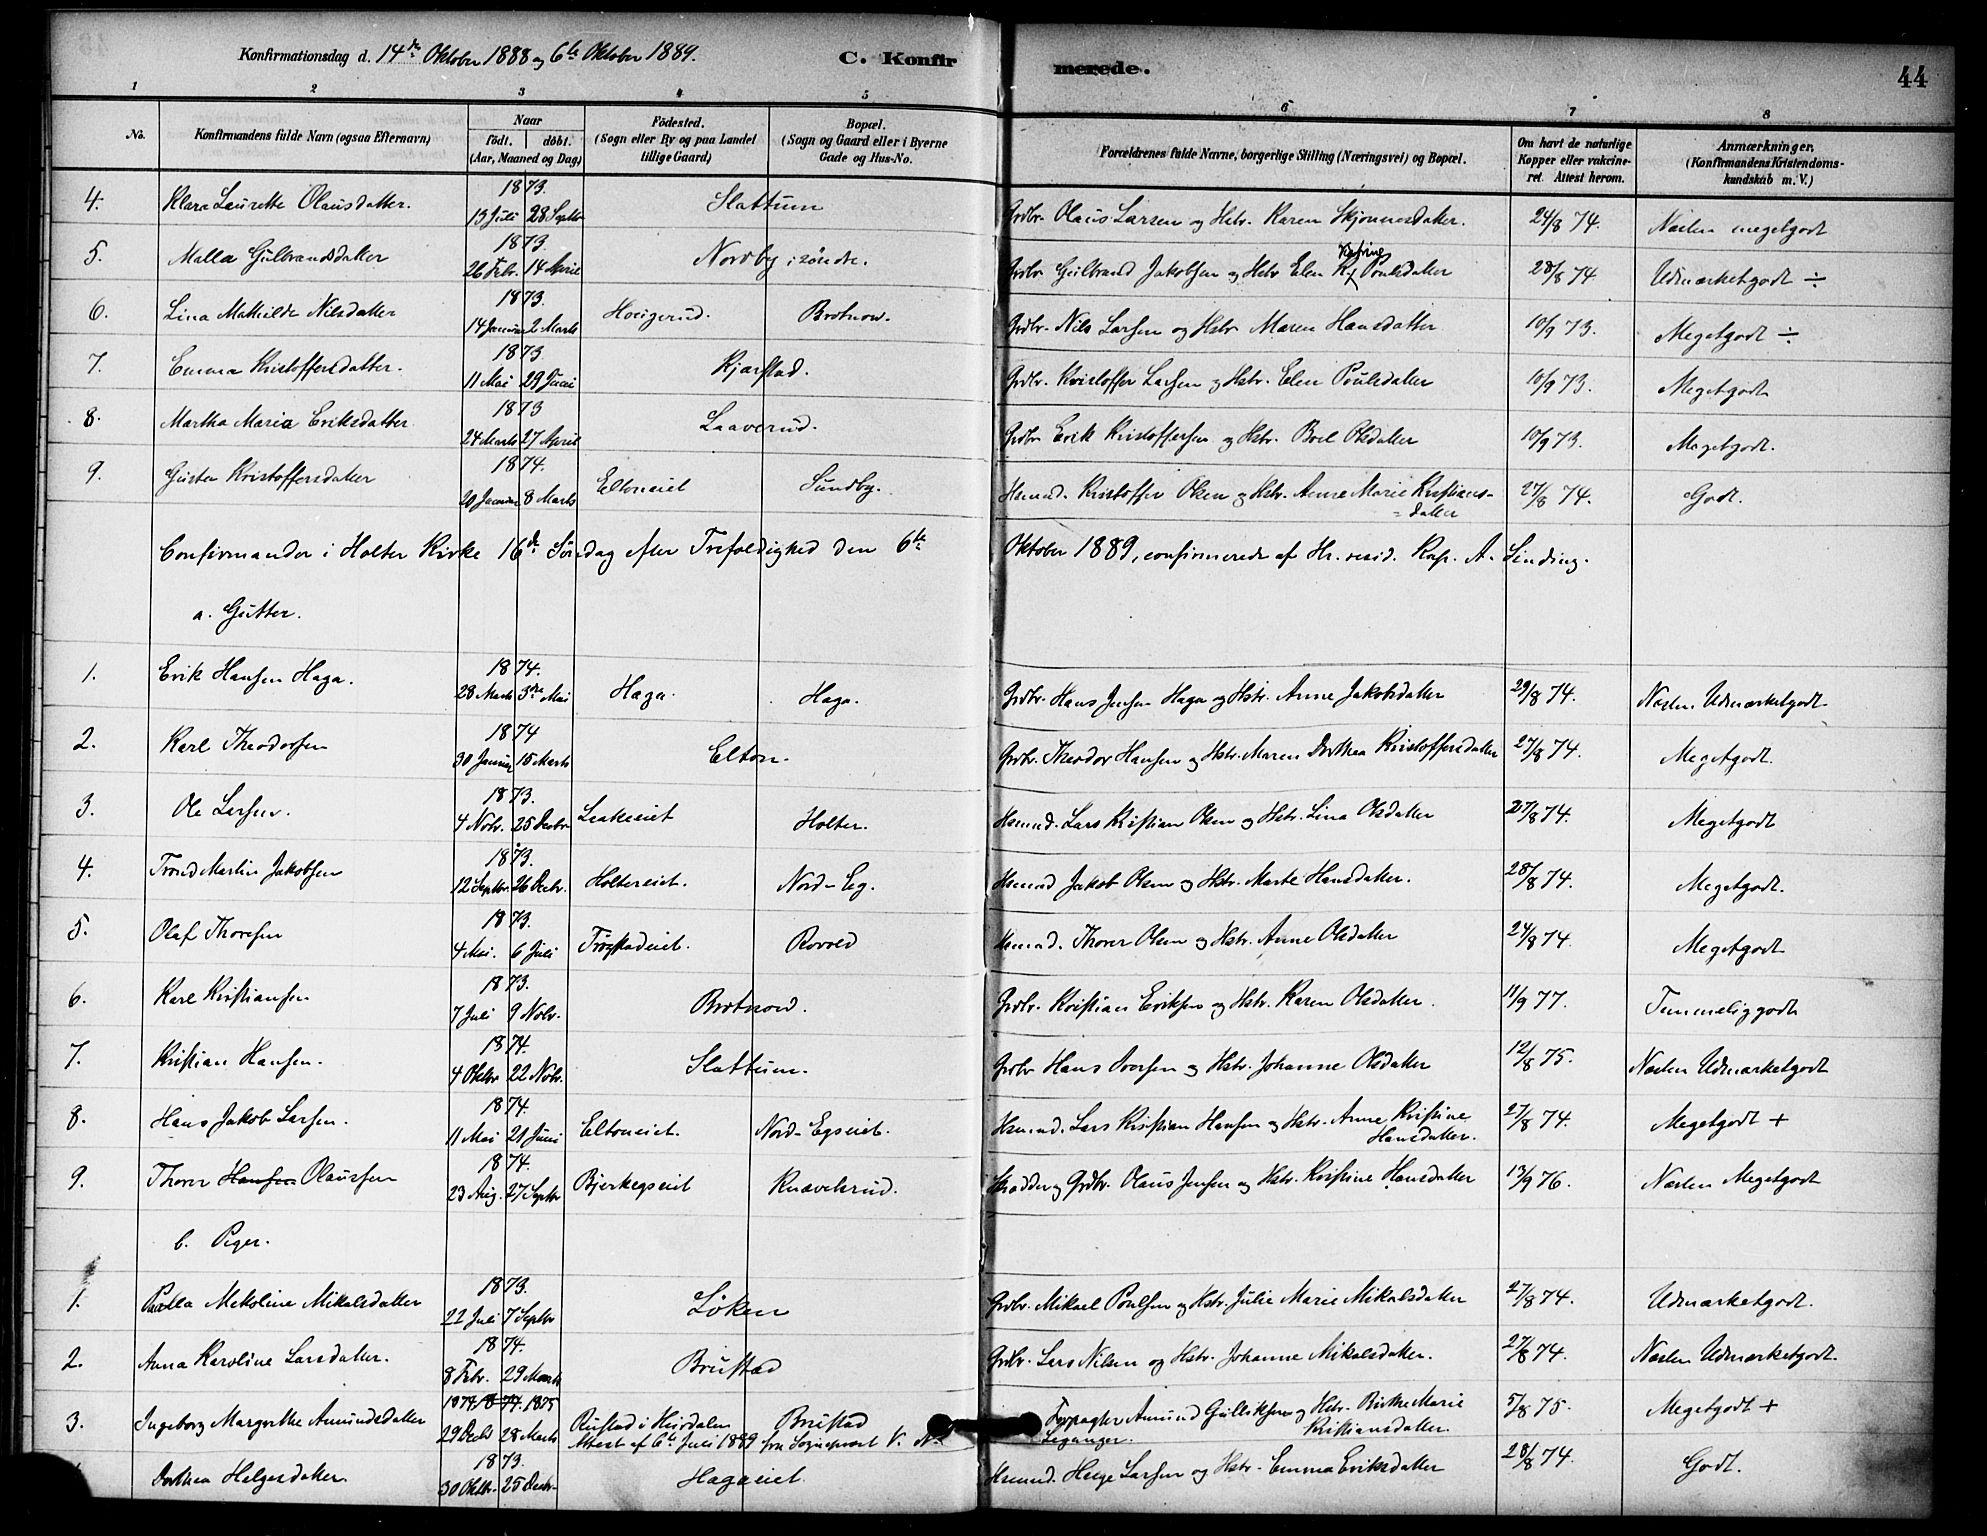 Konfirmationsdag d. 14de Oktober 1888 og 6te Oktober 1889. C. Konfirmerede. 44
1 2 3 4 5 6 7 8
No. Konfirmandens fulde Navn (ogsaa Efternavn) Naar födt. döbt. (Aar, Maaned og Dag) Födested. (Sogn eller By og paa Landet tillige Gaard) Bopæl. (Sogn og Gaard eller i Byerne Gade og Hus-No. Forældrenes fulde Navne, borgerlige Stilling (Næringsvei) og Bopæl. Om havt de naturlige Kopper eller vakcineret. Attest herom. Anmærkninger. (Konfirmandens Kristendomskundskab m.V.)
4. Klara Laurette Olausdatter. 1873. 13 Juli 28 Septbr Slattum Grdbr. Olaus Larsen og Hstr. Karen Skjønnesdatter. 24/8 74. Næsten megetgodt
5. Malla Gulbrandsdatter 1873. 26 Febr. 14 April Nordby i söndre. Grdbr. Gulbrand Jakobsen og Hstr Elen K. Poulsdatter 28/8 74. Udmærketgodt ÷
6. Lina Mathilde Nilsdatter 1873. 14 Januar 2 Marts Brotnow. Grdbr. Nils Larsen og Hstr Maren Hansdatter 10/9 73. Megetgodt ÷
7. Emma Kristoffersdatter. 1873. 11 Mai 29 Juni Kjærstad. Grdbr. Kristoffer Larsen og Hstr. Elen Poulsdatter 10/9 73. Megetgodt
8. Martha Maria Eriksdatter 1873 24 Marts 27 April Laaverud. Grdbr Erik Kristoffersen og Hstr. Boel Olsdatter 10/9 73. Megetgodt.
9. Gusta Kristoffersdatter 1874. 20 Januar 8 Marts Eltoneiet Sundby. Hsmnd. Kristoffer Olsen og Hstr. Anne Marie Kristians-
=datter 27/8 74. Godt.
Confirmander i Holter Kirke 16de Söndag efter Trefoldighed den 6te Oktober 1889, confirmerede af Hr. resid. Kap. A. Sinding.
a. Gutter.
1. Erik Hansen Haga. 1874. 28 Marts 3die Mai Haga. Haga. Grdbr. Hans Jensen Haga og Hstr. Anne Jakobsdatter 29/8 74. Næsten Udmærketgodt
2. Karl Theodorsen 1874 30 Januar 15 Marts Elton. Grdbr. Theodor Hansen og Hstr. Maren Dorthea Kristoffersdatter 27/8 74. Megetgodt.
3. Ole Larsen. 1873. 4 Novbr. 25 Decbr Leakeiet Holter. Hsmnd. Lars Kristian Olsen og Hstr. Lina Olsdatter 27/8 74. Megetgodt
4. Trond Martin Jakobsen 1873. 12 Septbr. 26 Decbr. Holtereiet. Nord-Eg. Hsmnd Jakob Olsen og Hstr. Marte Hansdatter. 28/8 74. Megetgodt.
5. Olaf Thoresen 1873. 4 Mai. 6 Juli Trögstadeiet. Hsmnd. Thorer Olsen og Hstr. Anne Olsdatter 24/8 74. Megetgodt
6. Karl Kristiansen 1873. 7 Juli 9 Novbr. Brotnow. Grdbr. Kristian Eriksen og Hstr. Karen Olsdatter. 11/9 77. Temmeliggodt
7. Kristian Hansen. 1874. 4 Oktbr 22 Novbr. Slattum. Grdbr Hans Iversen og Hstr. Johanne Olsdatter 12/8 75. Næsten Udmærketgodt
8. Hans Jakob Larsen. 1874. 11 Mai 21 Juni Eltoneiet. Nord-Egseiet. Hsmnd. Lars Kristian Hansen og Hstr. Anne Kristine
Hansdatter. 27/8 74. Megetgodt +
9. Thorer Hansen Olaussen 1874. 23 Aug. 27 Septbr Bjerkegseiet Knavelsrud. Skrædder og Grdbr. Olaus Jensen og Hstr. Kristine Hansdatter 13/9 76. Næsten Megetgodt
b. Piger.
1. Mekoline Mikalsdatter 1873. 22 Juli 7 Septbr Löken Grdbr. Mikael Poulsen og Hstr. Julie Marie Mikalsdatter 27/8 74. Udmærketgodt.
2. Anna Karoline Larsdatter. 1874. 8 Febr. 29 Marts Brustad Grdbr. Lars Nilsen og Hstr. Johanne Mikalsdatter. 27/8 74. Næsten Udmærketgodt.
3. Ingeborg Margrethe Amundsdatter 1874 1874. 1875 29 Decbr 28 Marts Rustad i Hurdalen Brustad Forpagter Amund Gulliksen og Hstr. Birthe Marie
Kristiansdatter. 5/8 75. Megetgodt +
Attest af 6te Juli 1889 fra Sognepræst V. N. Leganger.
Dorthea Helgesdatter 1873. 30 Oktbr. 25 Decbr. Hagaeiet Hsmnd. Helge Larsen og Hstr. Emma Eriksdatter 28/8 74. Godt.